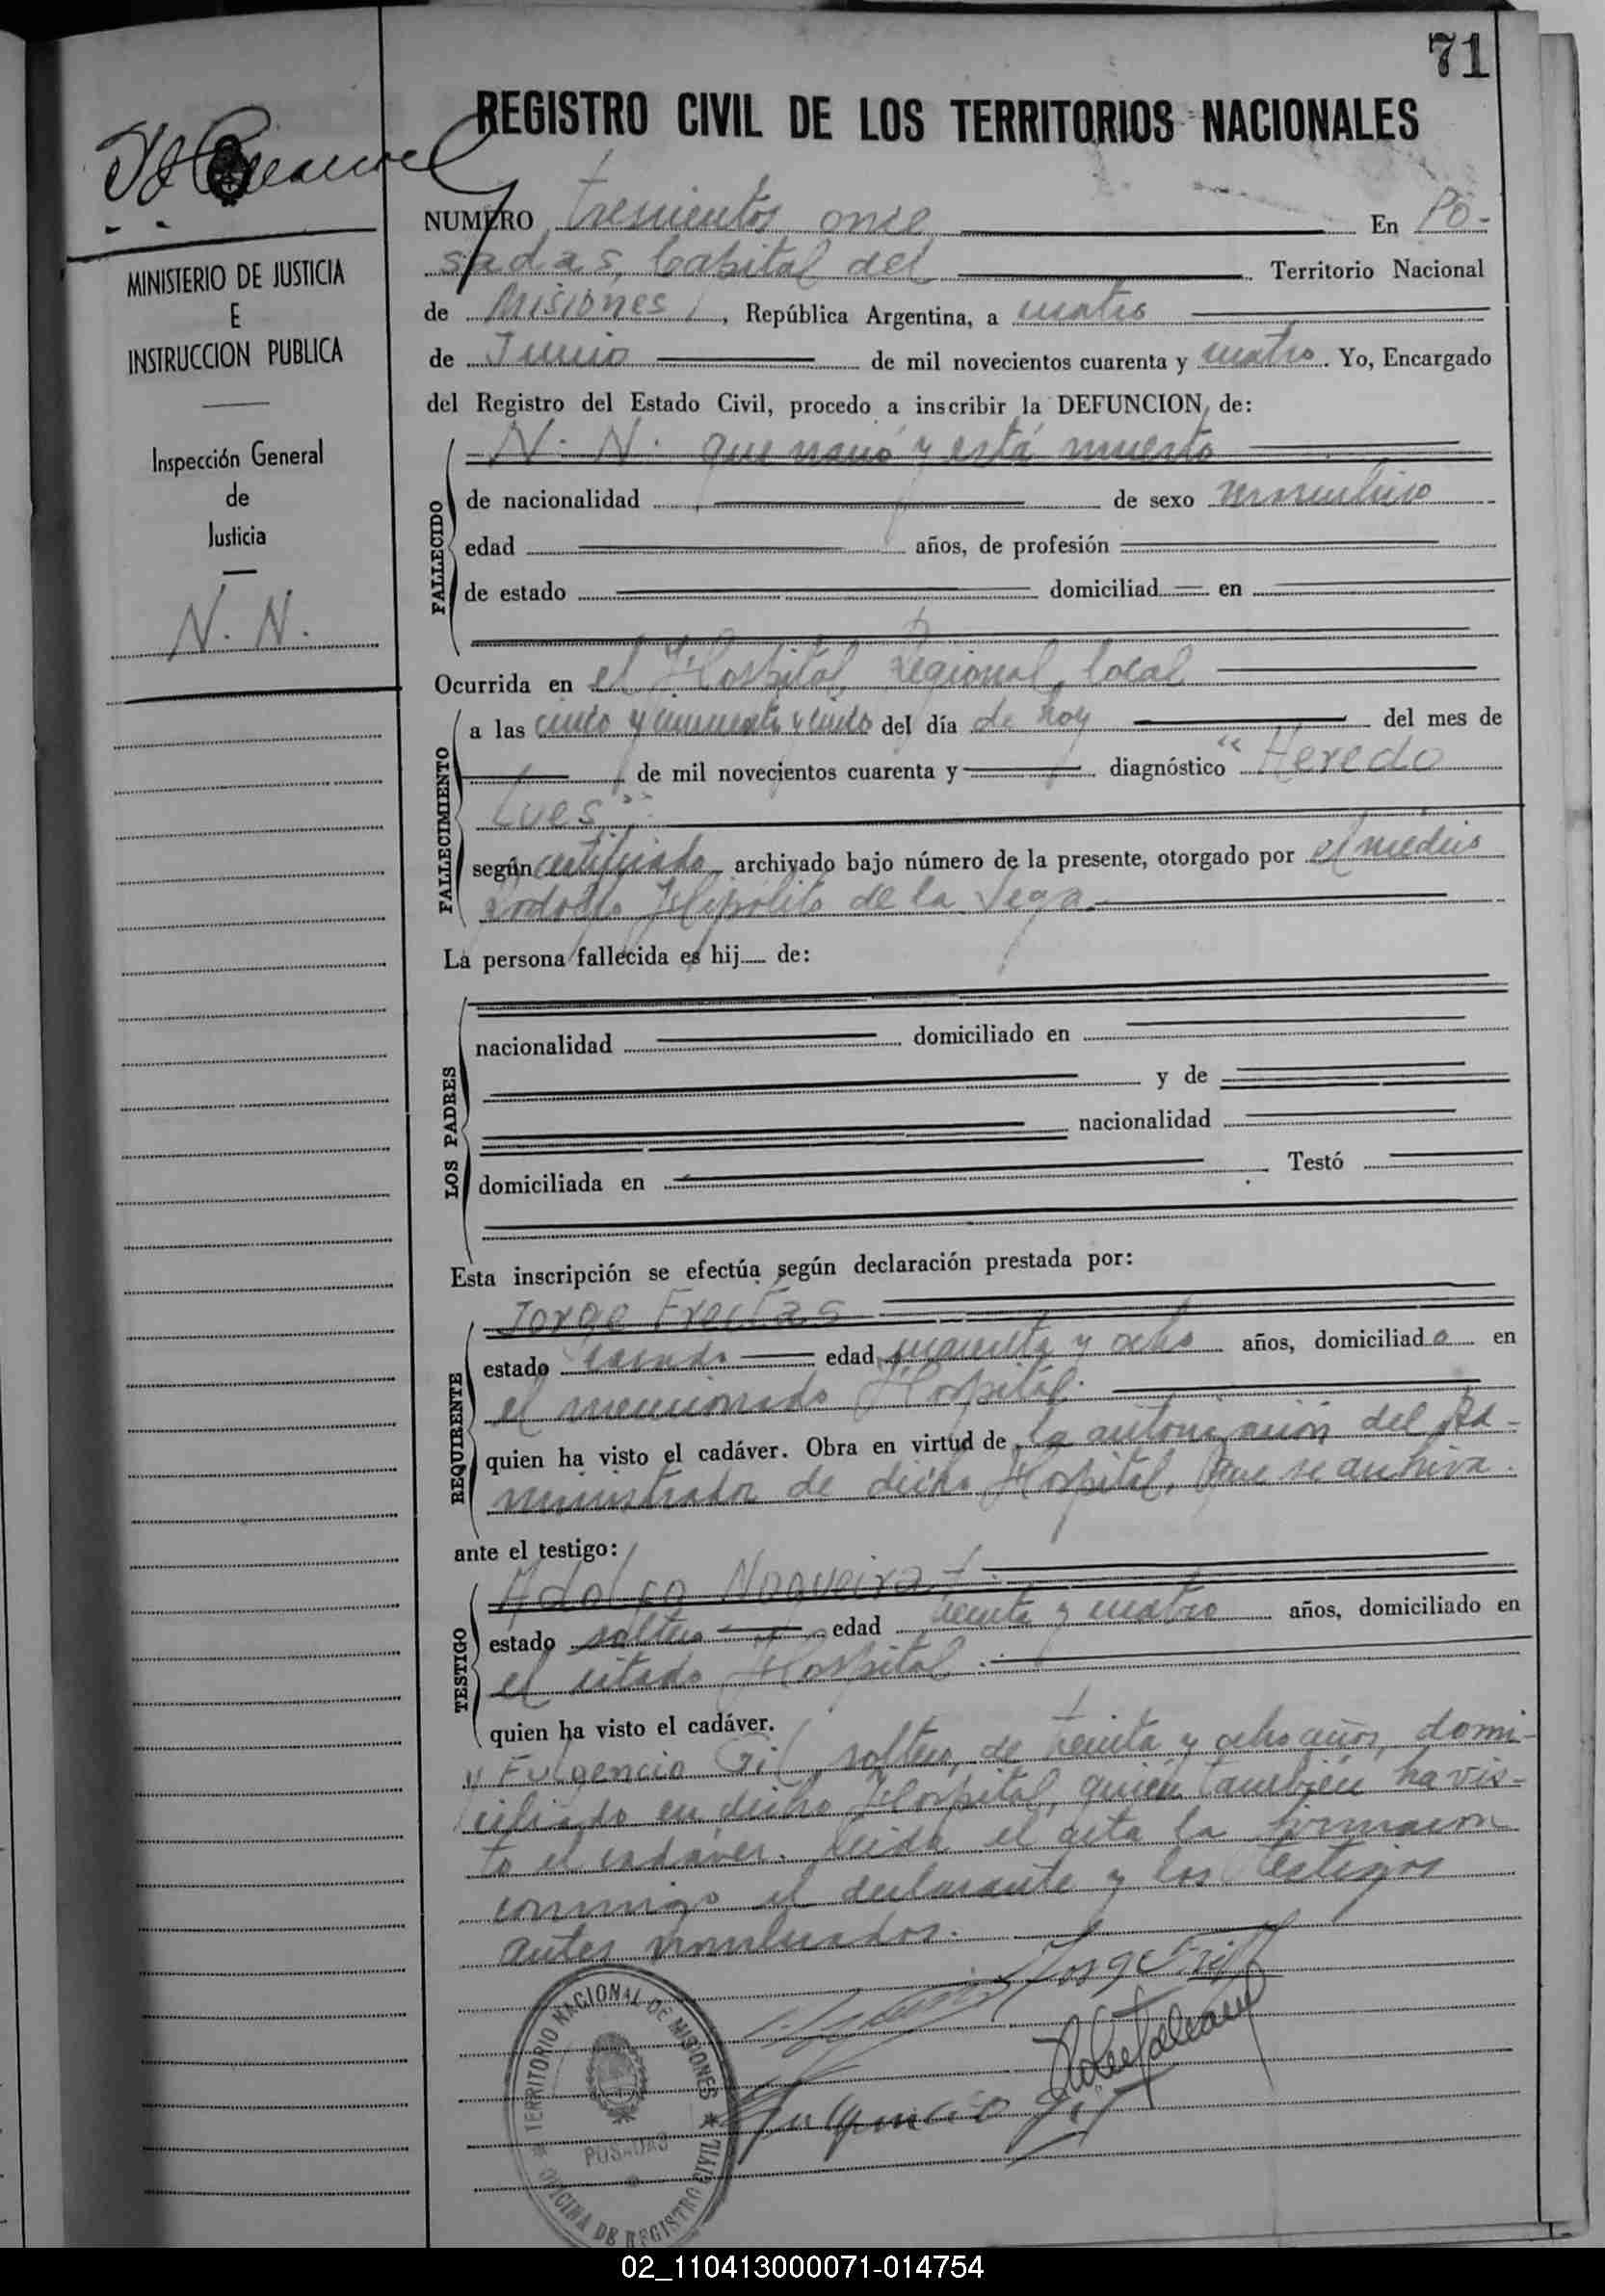 71
REGISTRO CIVIL DE LOS TERRITORIOS NACIONALES
MINISTERIO DE JUSTICIA
E
INSTRUCCION PUBLICA
Inspección General
de
Justicia
N. N.
NUMERO trescientos once En Po-
sadas, Capital del Territorio Nacional
de Misiones, República Argentina, a cuatro
de Junio de mil novecientos cuarenta y cuatro. Yo, Encargado
del Registro del Estado Civil, procedo a inscribir la DEFUNCION de:
FALLECIDO
N. N. que nació y está muerto
de nacionalidad de sexo masculino
edad años, de profesión
de estado domiciliad en
Ocurrida en el Hospital regional local
FALLECIMIENTO
a las cinco y cincuenta y cinco del día de hoy del mes de
de mil novecientos cuarenta y diagnóstico "Heredo
Lues"
según certificado archivado bajo número de la presente, otorgado por el médico
Rodolfo Hipólito de la Vega.
La persona fallecida es hij de:
LOS PADRES
nacionalidad domiciliado en
y de
nacionalidad
domiciliada en Testó
Esta inscripción se efectúa según declaración prestada por:
REQUIRENTE
Jorge Freitas
estado casado edad cuarenta y ocho años, domiciliado en
el mencionado Hospital.
quien ha visto el cadáver. Obra en virtud de la autorización del Ad-
ministrador de dicho Hospital, que se archiva.
ante el testigo:
TESTIGO
Adolfo Nogueira
estado soltero edad treinta y cuatro años, domiciliado en
el citado Hospital.
quien ha visto el cadáver.
y Fulgencio Gil, soltero, de treinta y ocho años, domi-
ciliado en dicho Hospital, quien también ha vis-
to el cadáver. Leída el acta la firmaron
conmigo el declarante y los testigos
antes nombrados.
Fulgencio Gil
TERRITORIO NACIONAL DE MISIONES
POSADAS
OFICINA DE REGISTRO CIVIL
02_110413000071-014754